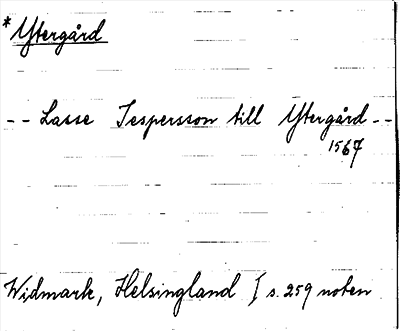 *Ytergård
-- Lasse Jespersson till Ytergård --
1567
Widmark, Helsingland I s. 259 noten